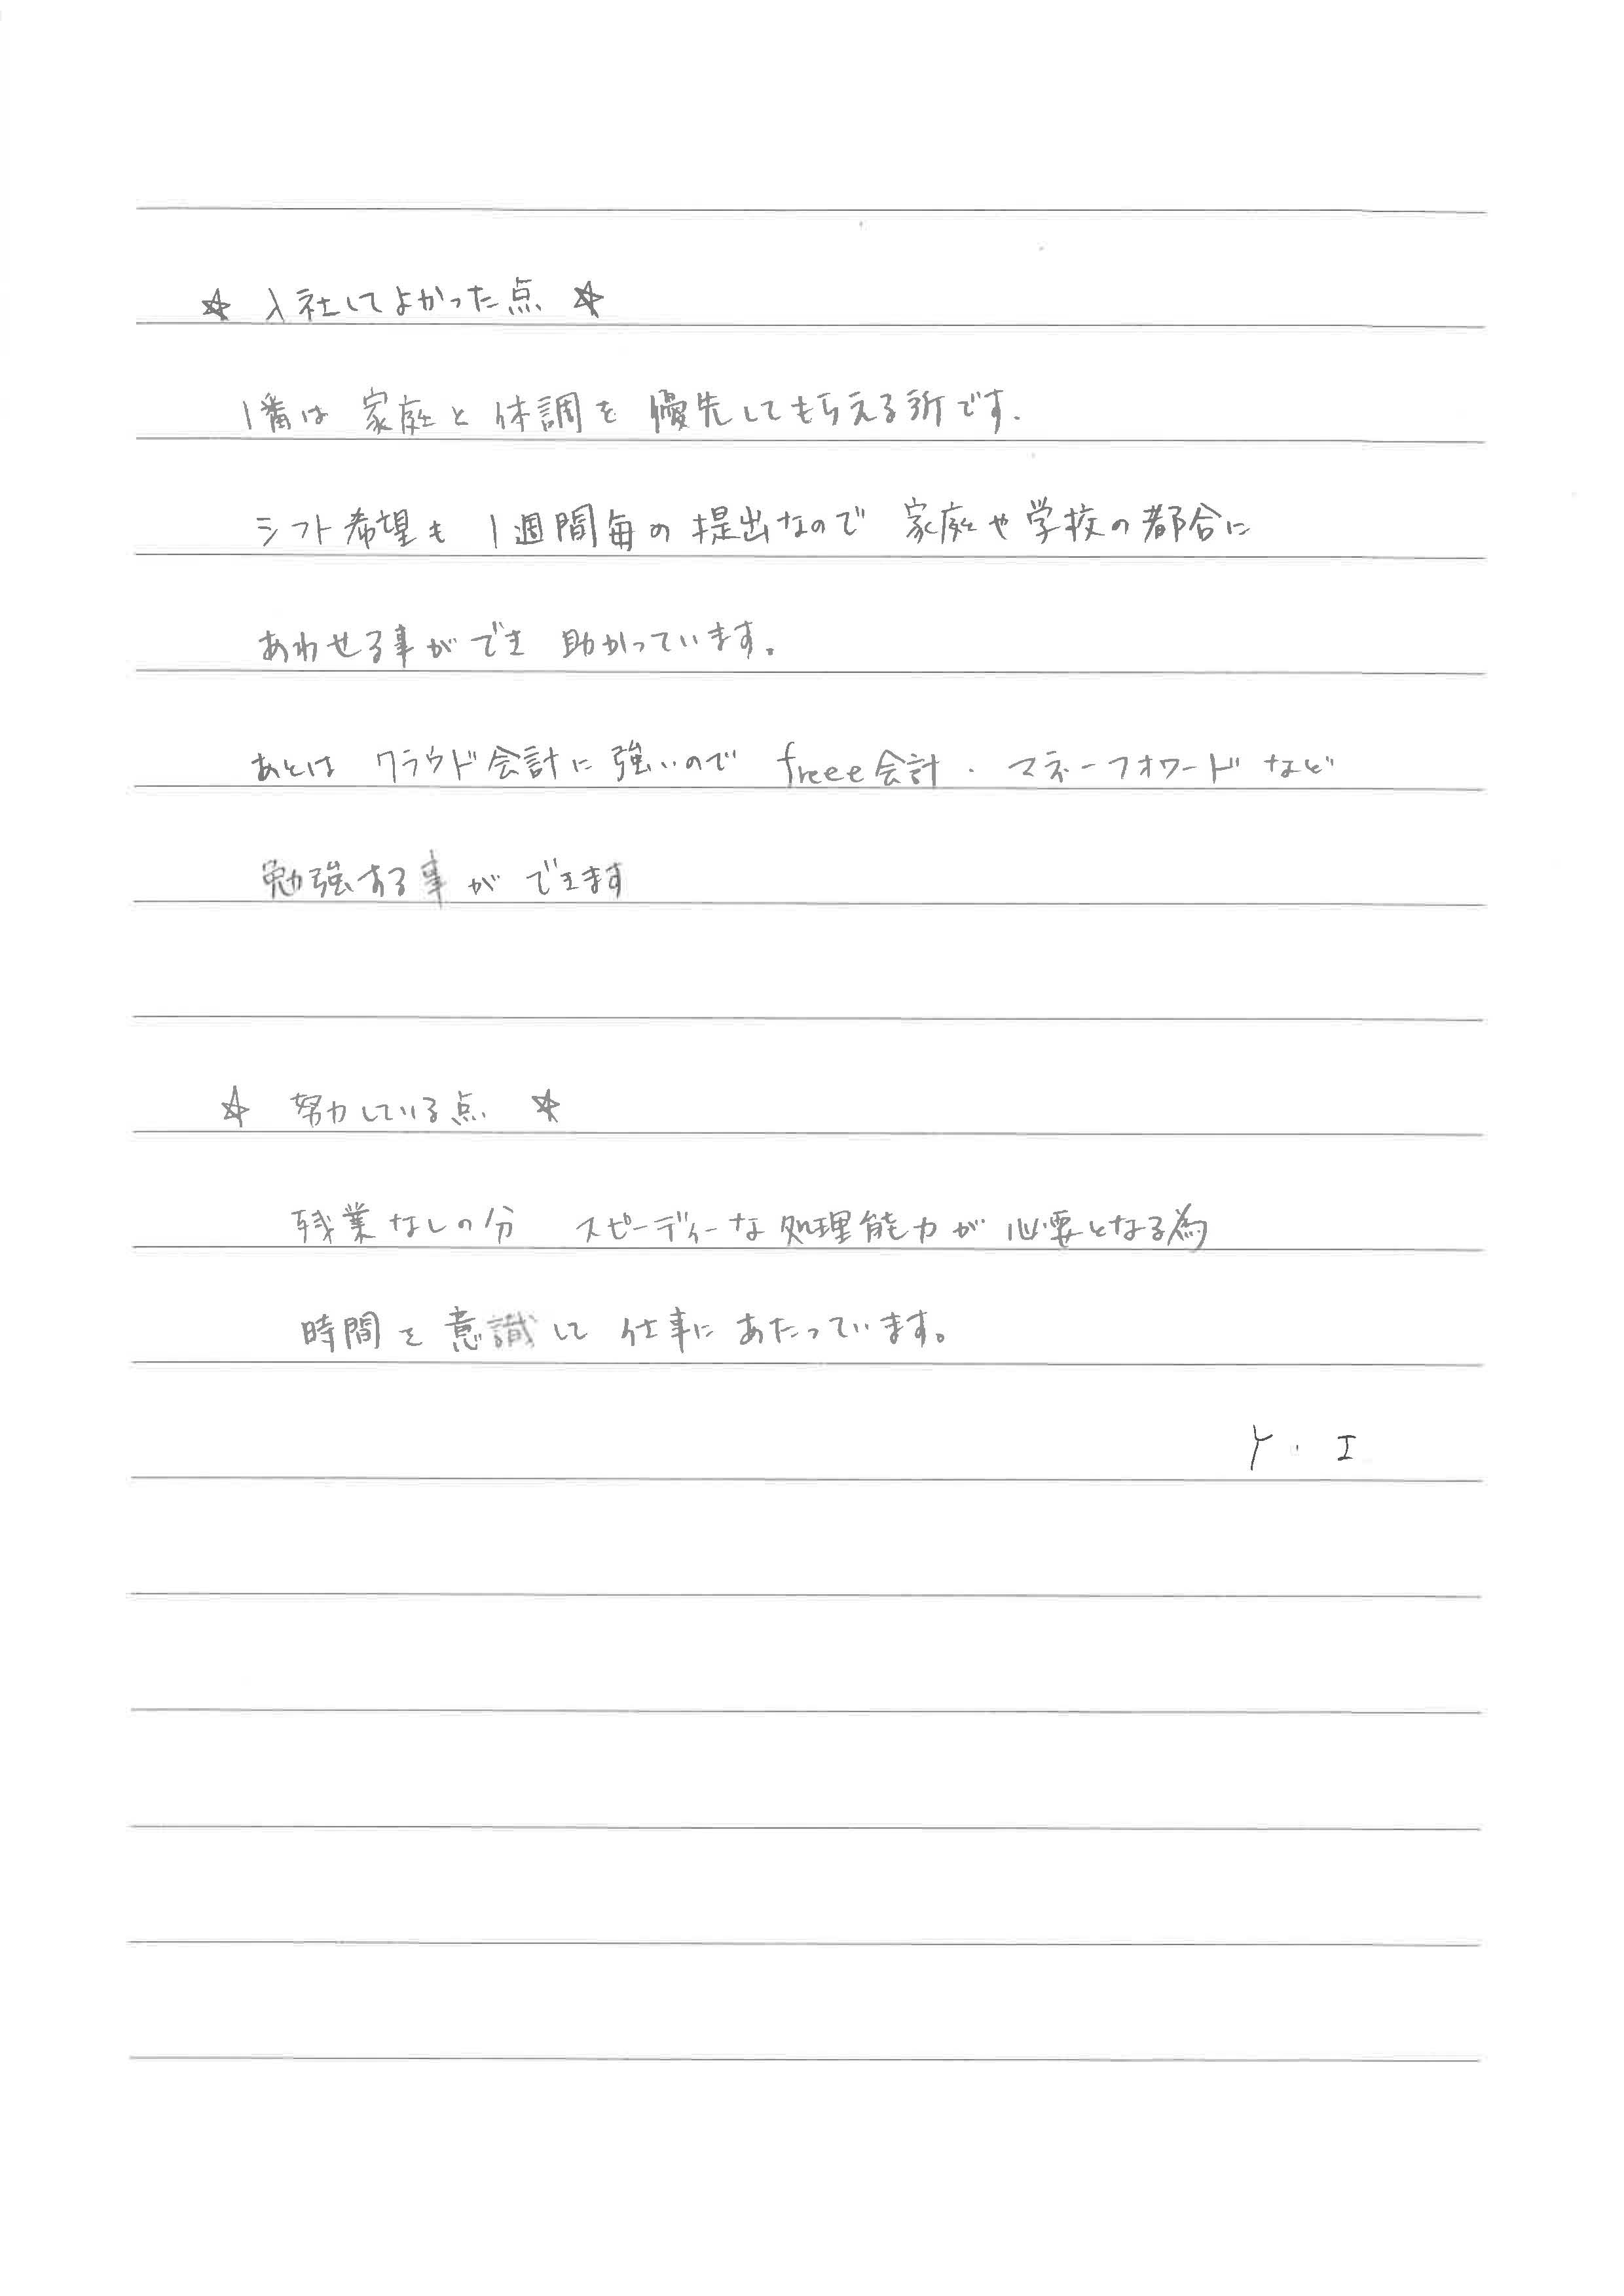 ☆ 入社してよかった点 ☆
1番は 家庭と 体調を 優先してもらえる所です.
シフト希望も 1週間毎の提出なので 家庭や学校の都合に
あわせる事ができ 助かっています。
あとは クラウド会計に強いので freee会計・マネーフォワードなど
勉強する事が できます
☆ 努力している点 ☆
残業なしの分 スピーディーな処理能力が 必要となる為
時間を意識して 仕事に あたっています。
Y . I